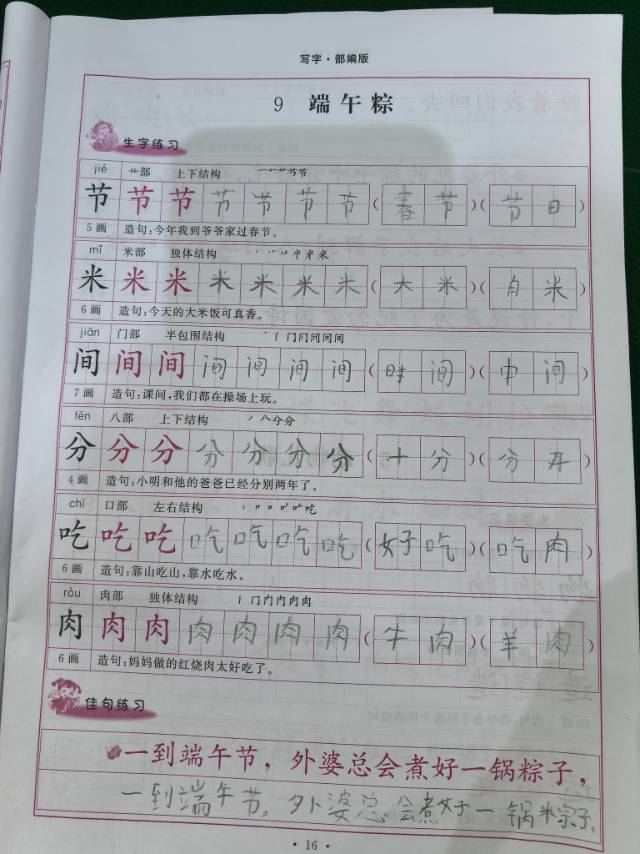 写字·部编版
9 端午粽
生字练习
jié 艹部 上下结构
节 节 节 节 节 节 节 (春 节)(节 日)
5画 造句:今年我到爷爷家过春节。
mǐ 米部 独体结构
米 米 米 米 米 米 米 (大 米)(白 米)
6画 造句:今天的大米饭可真香。
jiān 门部 半包围结构
间 间 间 间 间 间 间 (时 间)(中 间)
7画 造句:课间,我们都在操场上玩。
fēn 八部 上下结构
分 分 分 分 分 分 分 (十 分)(分 开)
4画 造句:小明和他的爸爸已经分别两年了。
chī 口部 左右结构
吃 吃 吃 吃 吃 吃 吃 (好 吃)(吃 肉)
6画 造句:靠山吃山,靠水吃水。
ròu 肉部 独体结构
肉 肉 肉 肉 肉 肉 肉 (牛 肉)(羊 肉)
6画 造句:妈妈做的红烧肉太好吃了。
佳句练习
一到端午节,外婆总会煮好一锅粽子,
一到端午节,外婆总会煮好一锅粽子,
·16·